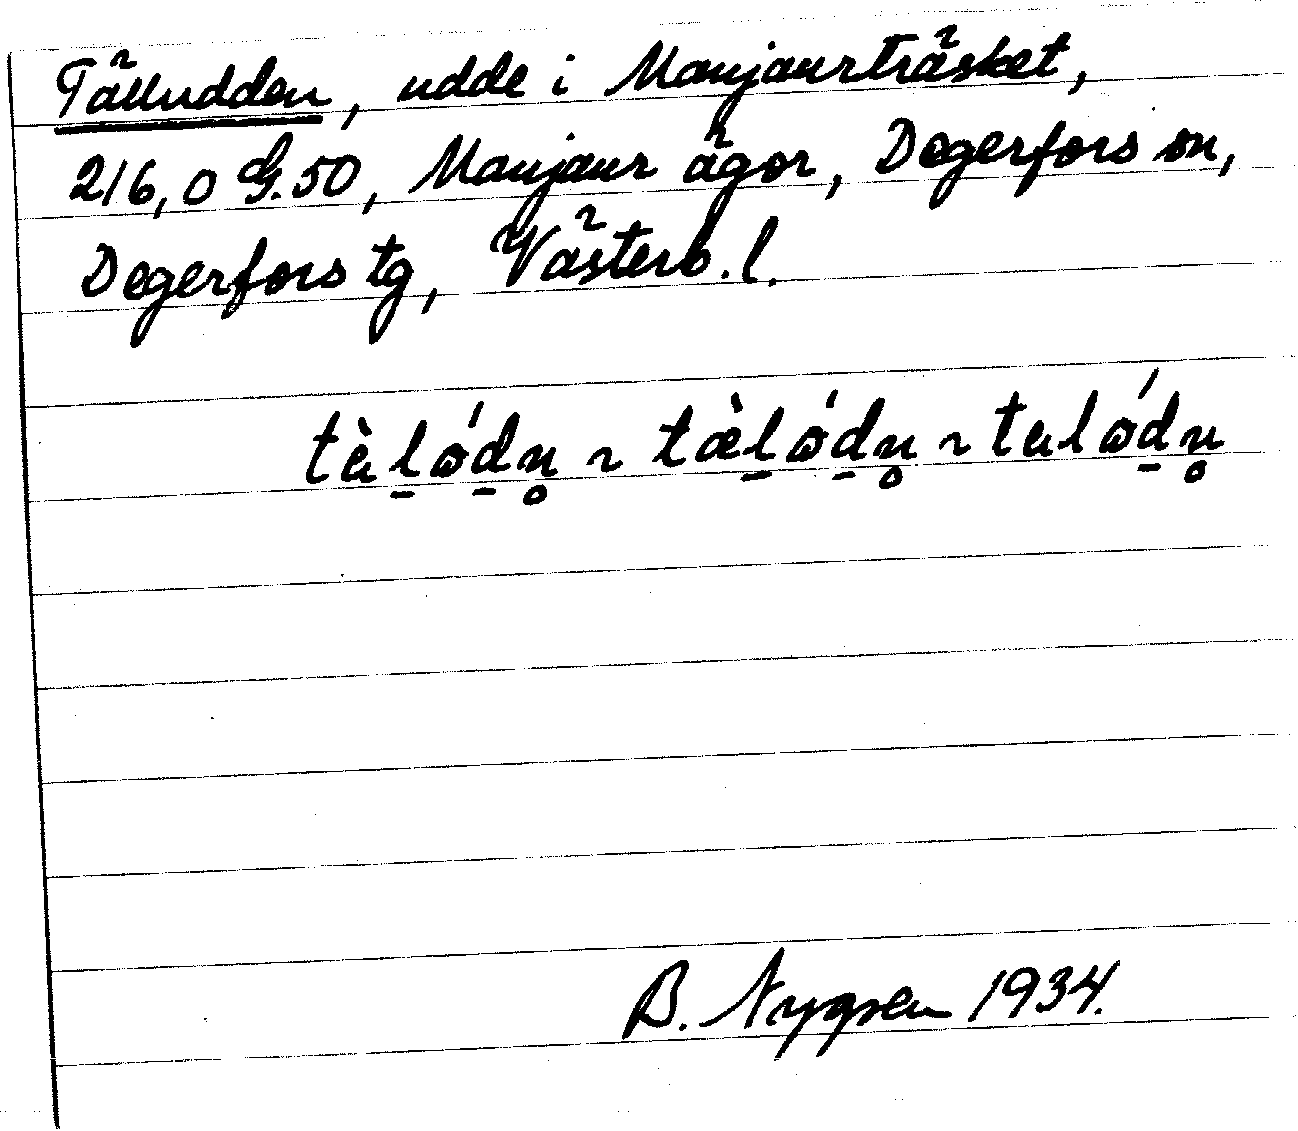 Tälludden, udde i Manjaurträsket,
216, o G. 50, Manjaur ägor, Degerfors sn,
Degerfors tg, Västerb. l.
B. Nygren 1934.